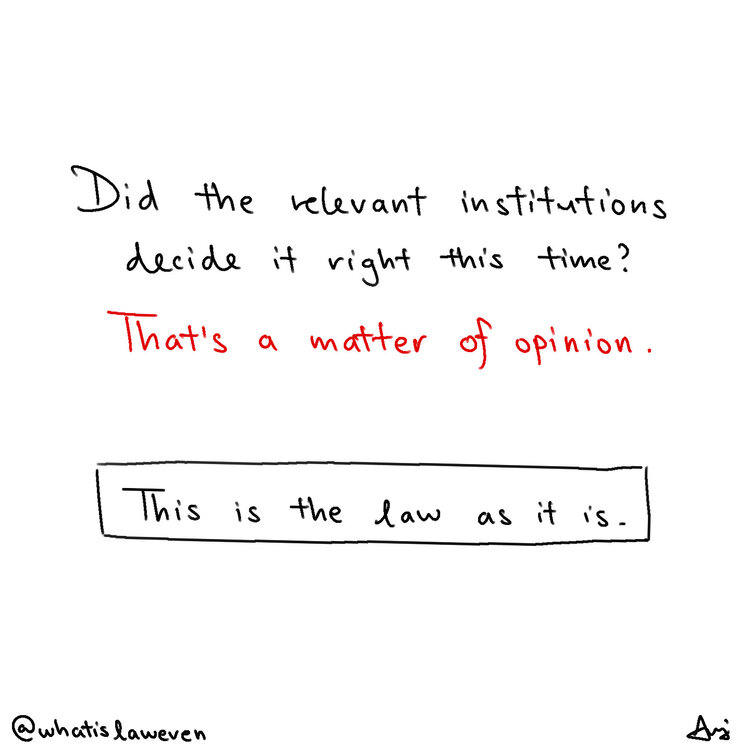 Did the relevant institutions
decide it right this time?
That's a matter of opinion.
This is the law as it is.
@whatislaweven